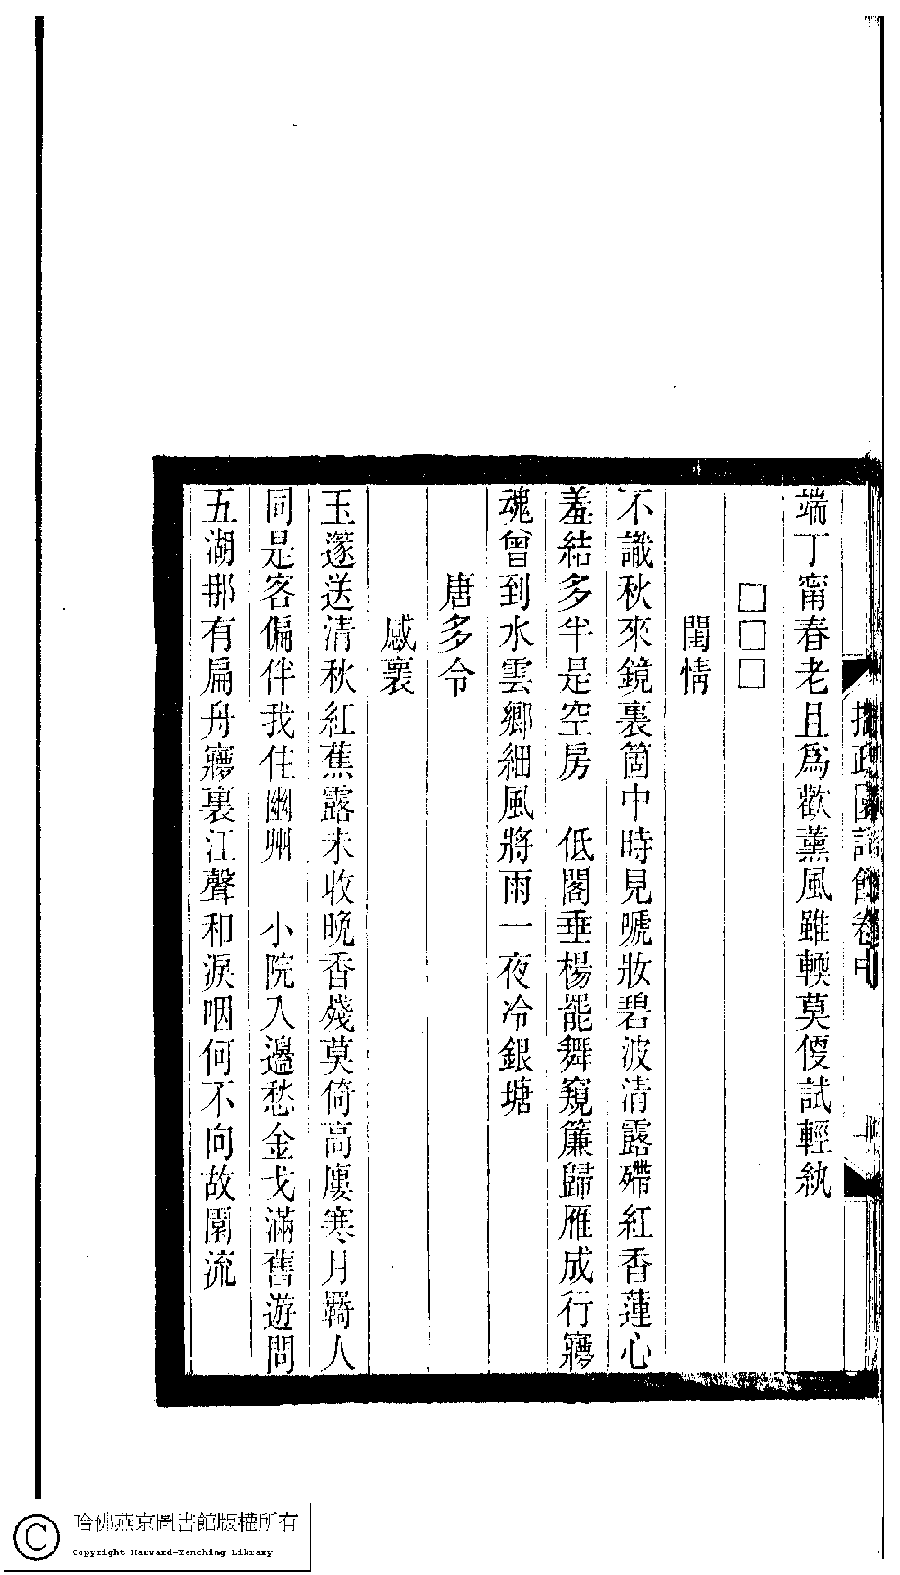 端丁甯春老且爲歡薰風雖輭莫便試輕紈
□□□
閨情
不識秋來鏡裏箇中時見嗁妝碧波清露殢紅香蓮心
羞結多半是空房　低閣垂楊罷舞窺簾歸雁成行㝱
魂曾到水雲鄉細風將雨一夜冷銀塘
唐多令
感襄
玉邃送清秋紅蕉露未收晚香殘莫倚高廔寒月羇人
同是客偏伴我住幽州　小院入邊愁金戈滿舊遊問
五湖那有扁舟㝱裏江聲和淚咽何不向故園流
卷中
哈佛燕京圖書館版權所有
Copyright Harvard-Yenching Library